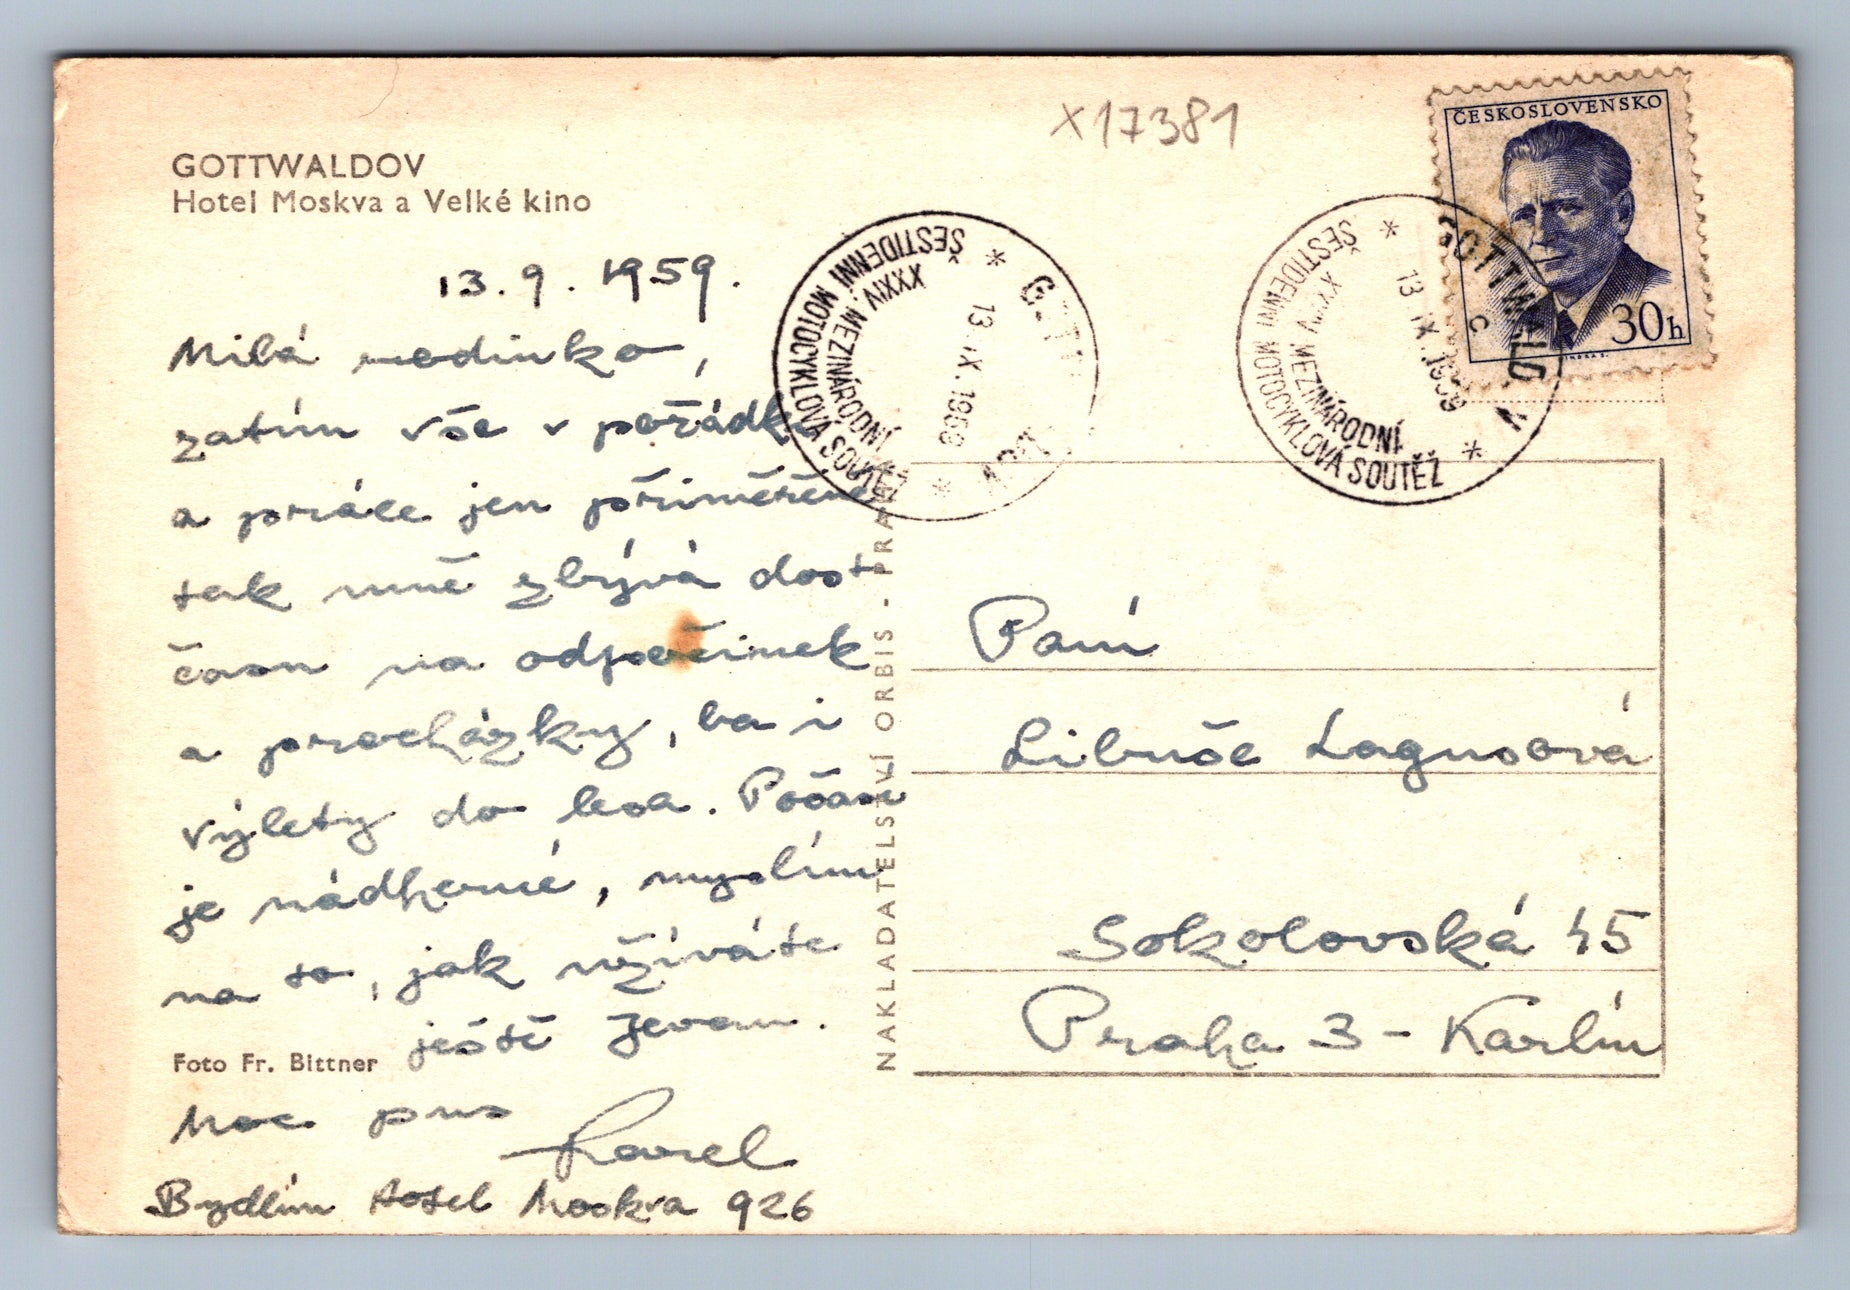 GOTTWALDOV
Hotel Moskva a Velké kino
x17381
ČESKOSLOVENSKO
30h
GOTTWALDOV
13.IX.1959
C
XXXIV. MEZINÁRODNÍ
ŠESTIDENNÍ MOTOCYKLOVÁ SOUTĚŽ
GOTTWALDOV
13.IX.1959
XXXIV. MEZINÁRODNÍ
ŠESTIDENNÍ MOTOCYKLOVÁ SOUTĚŽ
13.9.1959.
Milá rodinko,
zatím vše v pořádku
a práce jen přiměřeně
tak mně zbývá dost
času na odpočinek
a procházky, ba i
výlety do lesa. Počasí
je nádherné, myslím
na to, jak užíváte
ještě Jevan.
Moc pus
Karel
Bydlím Hotel Moskva 926
Foto Fr. Bittner
NAKLADATELSTVÍ ORBIS - PRAHA
Paní
Libuše Lagusová
Sokolovská 45
Praha 3 - Karlín